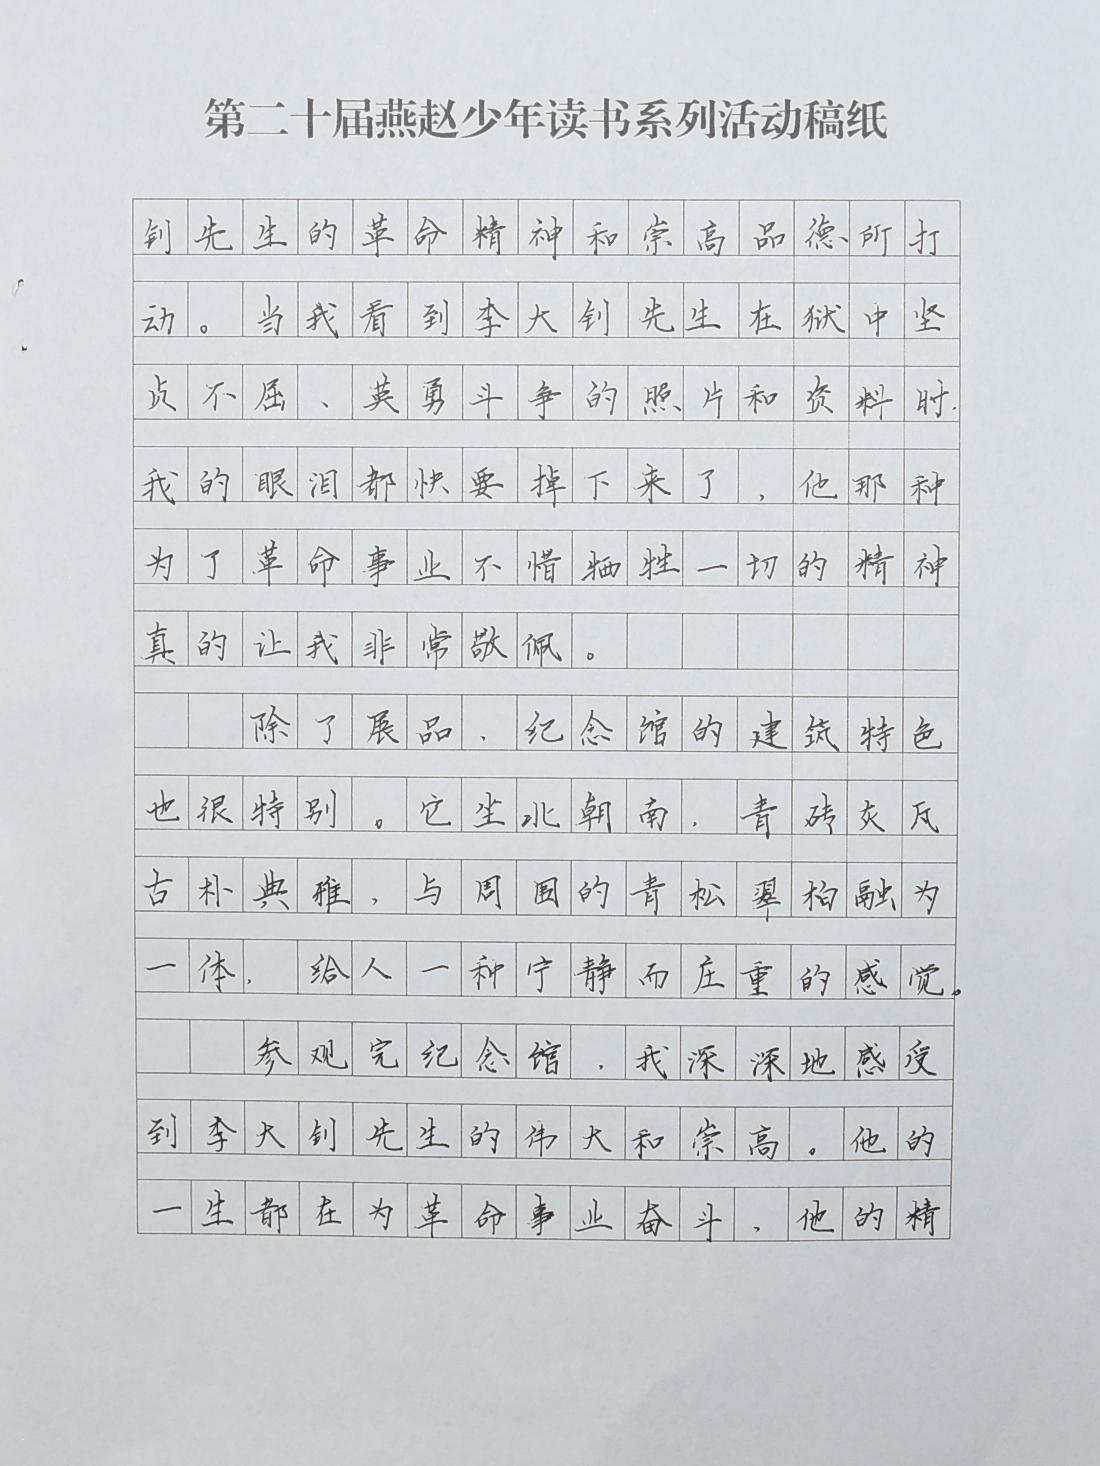 第二十届燕赵少年读书系列活动稿纸
钊先生的革命精神和崇高品德、所打
动。当我看到李大钊先生在狱中坚
贞不屈、英勇斗争的照片和资料时,
我的眼泪都快要掉下来了，他那种
为了革命事业不惜牺牲一切的精神
真的让我非常敬佩。
除了展品，纪念馆的建筑特色
也很特别。它坐北朝南，青砖灰瓦
古朴典雅，与周围的青松翠柏融为
一体，给人一种宁静而庄重的感觉。
参观完纪念馆，我深深地感受
到李大钊先生的伟大和崇高。他的
一生都在为革命事业奋斗，他的精